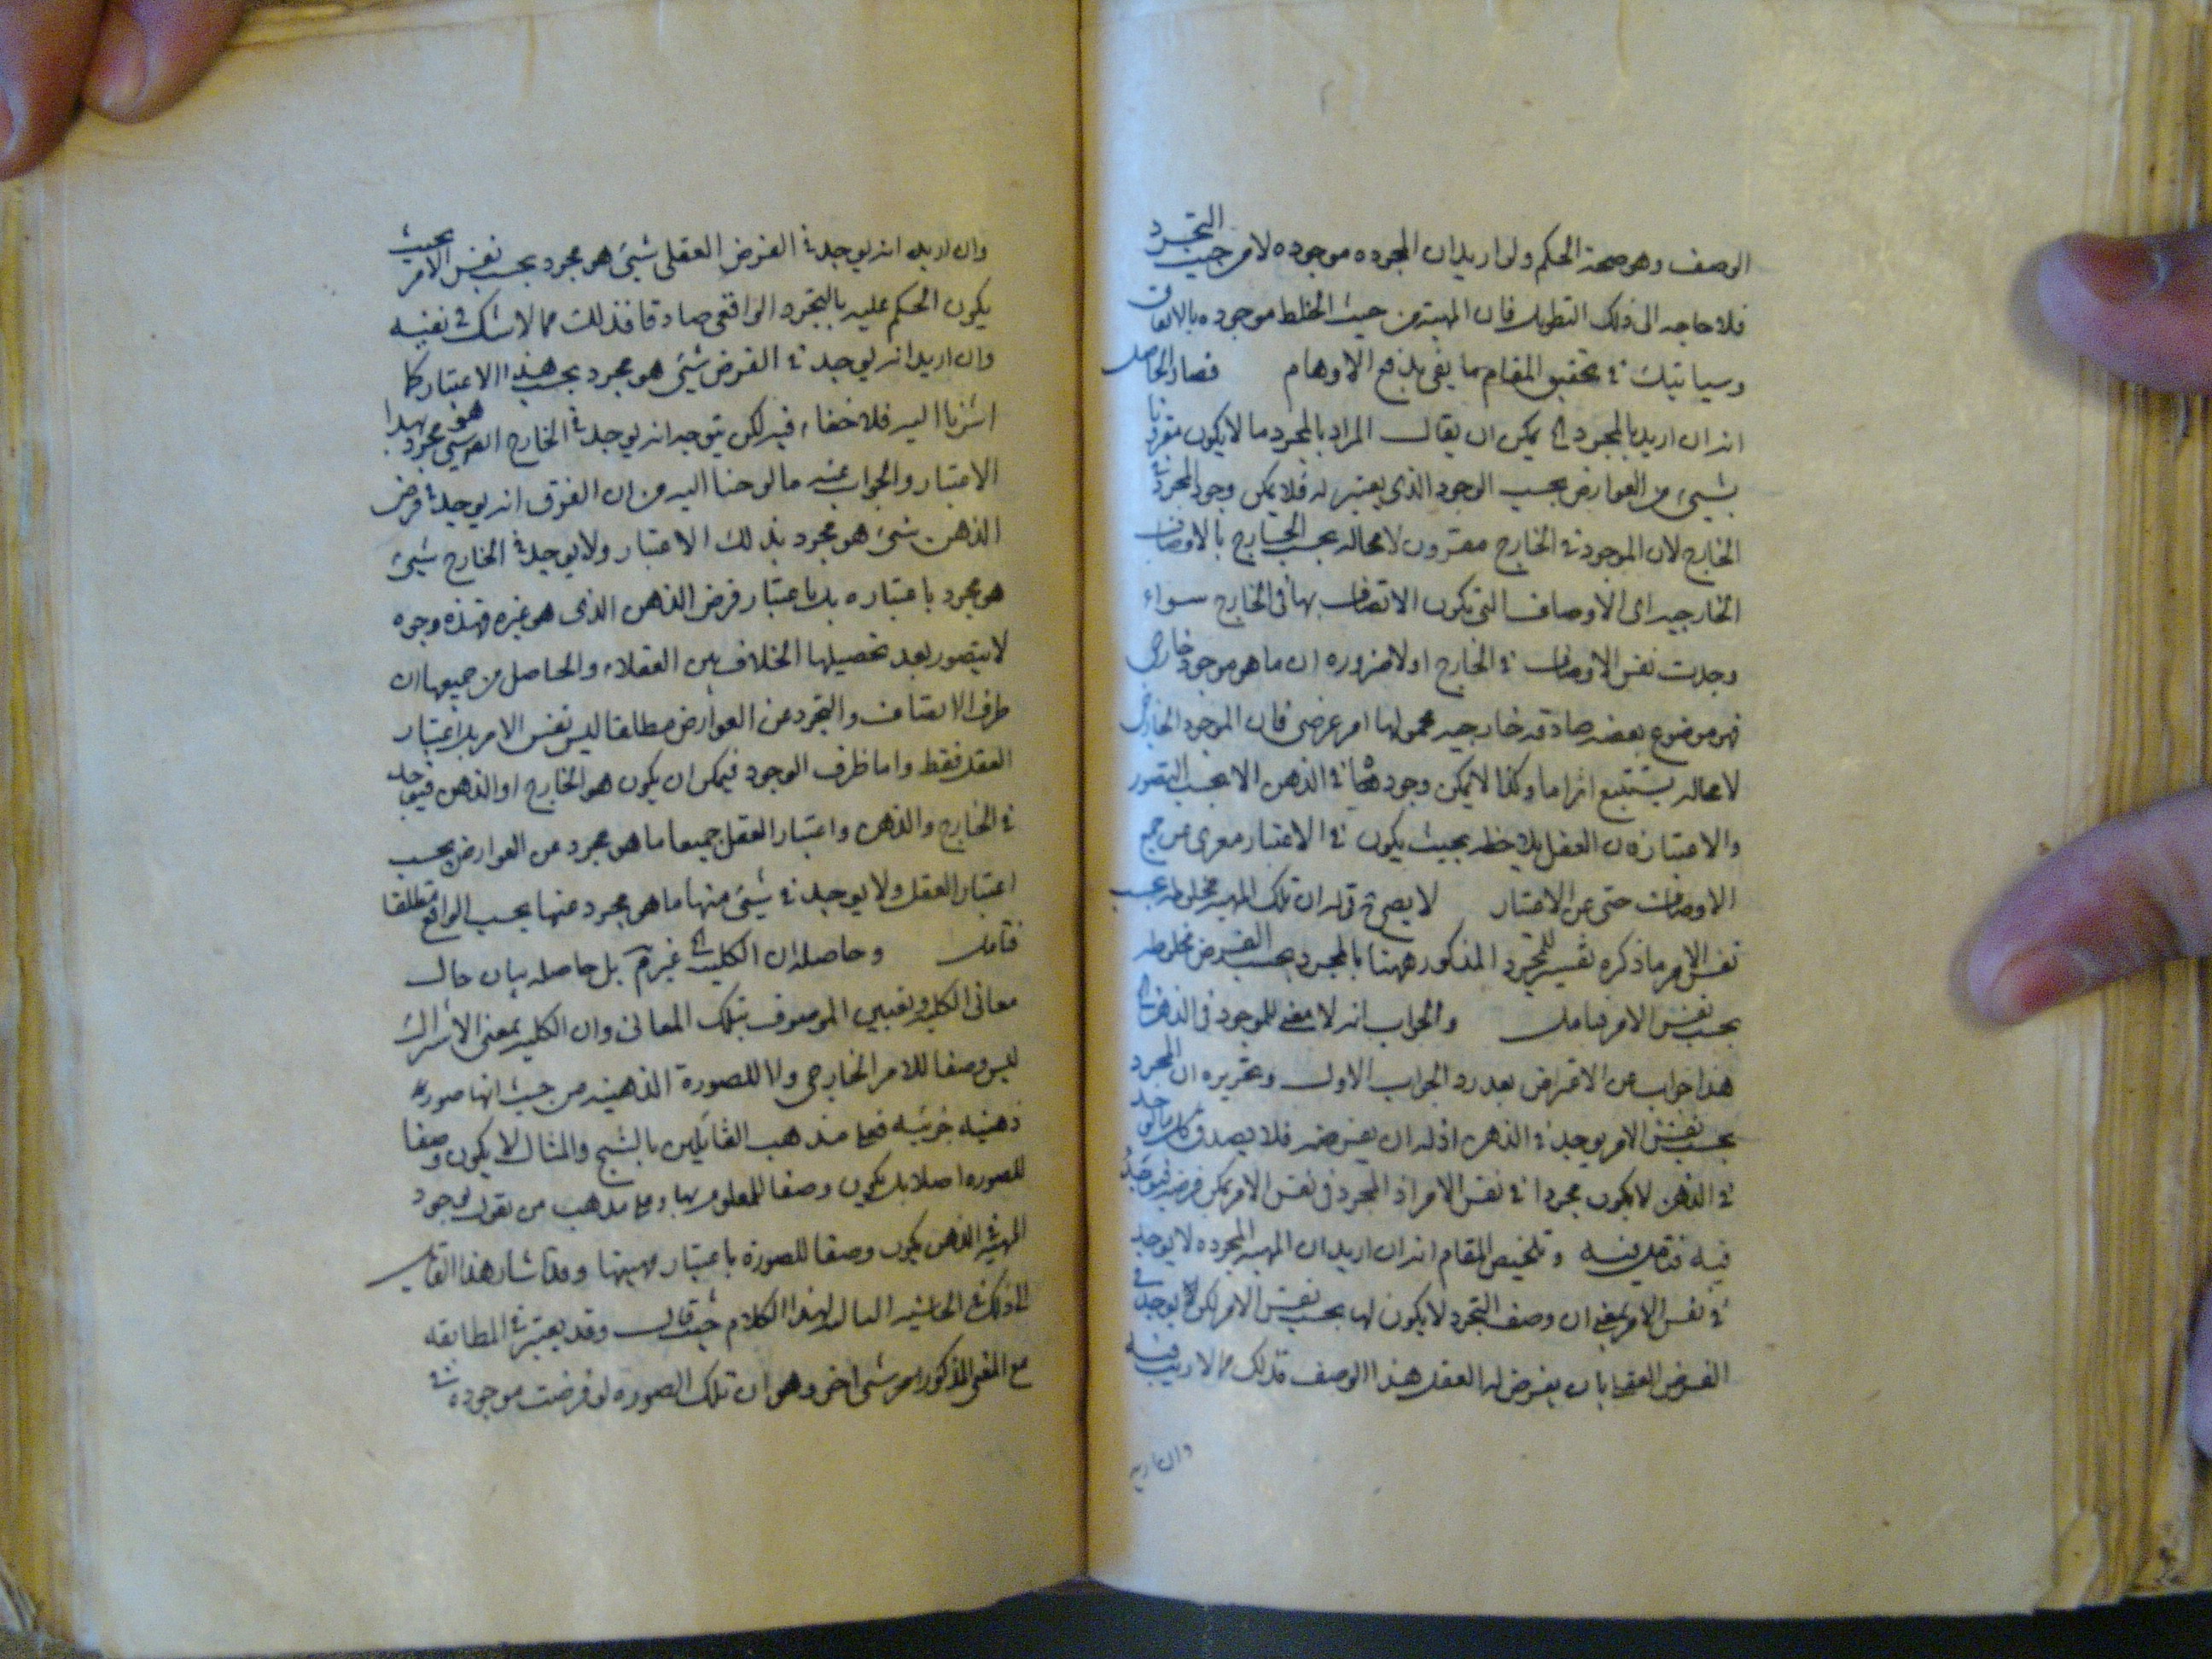 الوصف وهو صحة الحكم ولو اريد ان المجرده موجوده لا من حيث التجرد
فلا حاجه الى ذلك التطويل فان المهية من حيث الخلط موجوده بالاتفاق
وسياتيك في تحقيق المقام ما يفى بدفع الاوهام فصار الحاصل
انه ان اريد بالمجرد الخ يمكن ان يقال المراد بالمجرد ما لا يكون مقرونا
بشيئ من العوارض بحسب الوجود الذى يعتبر له فلا يمكن وجود المجرد في
الخارج لان الموجود في الخارج مقرون لا محاله بحسب الخارج بالاوصاف
الخارجيه اى الاوصاف التى يكون الاتصاف بها فى الخارج سواء
وجدت نفس الاوصاف في الخارج اولا ضروره ان ما هو موجود خارجى
فهو موضوع بعضه صادقه خارجيه محمولها امر عرضى فان الموجود الخارجى
لا محاله يستتبع اثرا ما وكذا لا يمكن وجودها في الذهن الا بحسب التصور
والاعتبار فان العقل يلاحظه بحيث يكون في الاعتبار معرى عن جميع
الاوصاف حتى عن الاعتبار لا يصح قوله ان تلك المهيه مخلوطه بحسب
نفس الامر ما ذكره تفسير للمجرد المذكور ههنا بالمجرد بحسب الفرض مخلوطه
بحسب نفس الامر فتامل والجواب انه لا معنى للموجود فى الذهن الخ
هذا جواب عن الاعتراض بعد رد الجواب الاول وتحريره ان المجرد
بحسب نفس الامر يوجد في الذهن اذ له ان يفرضه فلا يصدق كل ما يوجد
في الذهن لا يكون مجردا في نفس الامر اذ المجرد فى نفس الامر يمكن فرضه فيوجد
فيه فتامل فيه وتلخيص المقام انه ان اريد ان المهيه المجرده لا يوجد
في نفس الامر بمعنى ان وصف التجرد لا يكون لها بحسب نفس الامر لكن يوجد في
الفرض العقلى بان يفرض له العقل هذا الوصف فذلك مما لا ريب فيه
وان اريد
وان اريد انه يوجد في الفرض العقلى شيئ هو مجرد بحسب نفس الامر بحيث
يكون الحكم عليه بالتجرد الواقعى صادقا فذلك مما لا شك في نفيه
وان اريد انه يوجد في الفرض شيئ هو مجرد بحسب هذا الاعتبار كما
اشرنا اليه فلا خفاء فيه لكن يتوجه انه يوجد في الخارج شيئ هو مجرد بهذا
الاعتبار والجواب عنه ما لوحنا اليه من ان الفرق انه يوجد في فرض
الذهن شيئ هو مجرد بذلك الاعتبار ولا يوجد في الخارج شيئ
هو مجرد باعتباره بل باعتبار فرض الذهن الذى هو غيره فهذه وجوه
لا يتصور بعد تحصيلها الخلاف بين العقلاء والحاصل من جميعها ان
ظرف الاتصاف والتجرد عن العوارض مطلقا ليس نفس الامر بل اعتبار
العقل فقط واما ظرف الوجود فيمكن ان يكون هو الخارج او الذهن فيوجد
في الخارج والذهن واعتبار العقل جميعا ما هو مجرد عن العوارض بحسب
اعتبار العقل ولا يوجد في شيئ منها ما هو مجرد عنها بحسب الواقع مطلقا
فتامل وحاصله ان الكلية الخ غير م بل حاصله بيان حال
معانى الكلية وتعيين الموصوف بتلك المعانى وان الكليه بمعنى الاشتراك
ليس وصفا للامر الخارجى ولا للصورة الذهنيه من حيث انها صورة
ذهنيه جزئيه فعلى مذهب القائلين بالشبح والمثال لا يكون وصفا
للصوره اصلا بل يكون وصفا للمعلوم بها وعلى مذهب من يقول بوجود
المهية في الذهن يكون وصفا للصورة باعتبار مهيتها وقد اشار هذا القائل
الى ذلك في الحاشيه التاليه لهذا الكلام حيث قال وقد يعتبر في المطابقه
مع المعنى المذكور شئ اخر وهو ان تلك الصوره لو فرضت موجوده في